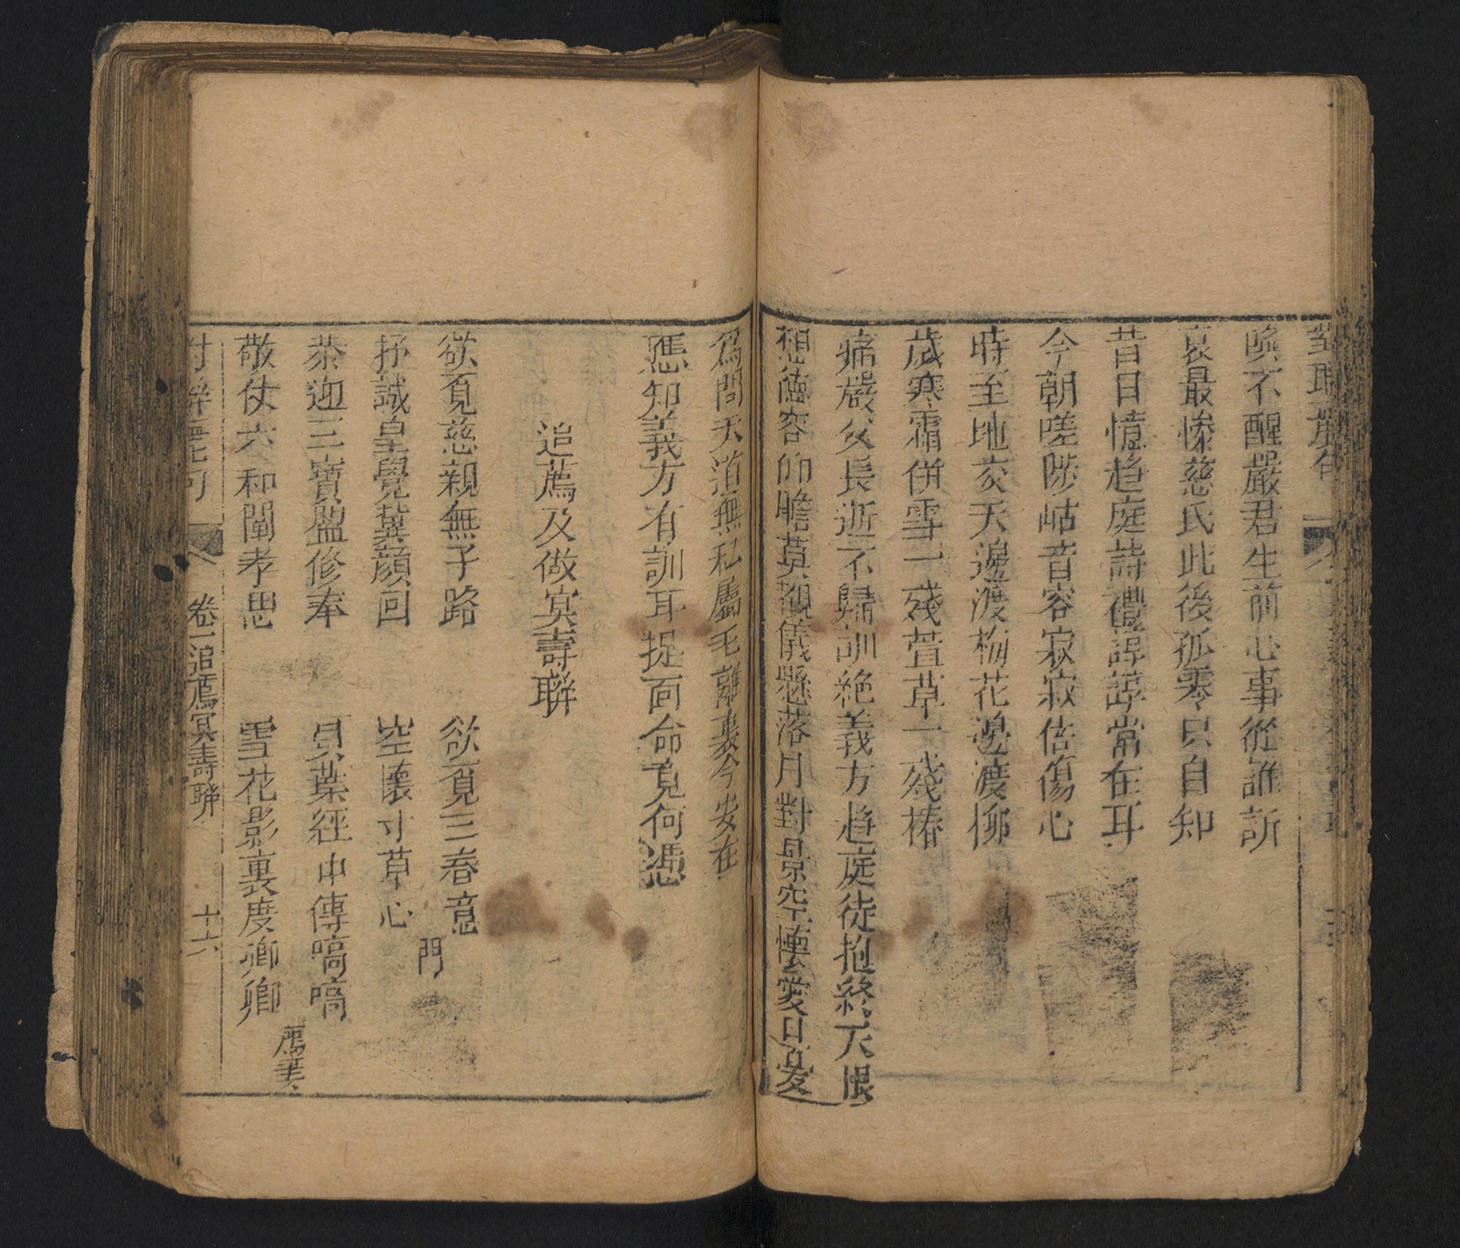 喚不醒嚴君生前心事從誰訴
哀最慘慈氏此後孤零只自知
昔日憶趋庭詩禮諄諄常在耳
今朝嗟陟岵音容寂寂倍傷心
時至地亥天邊渡梅花邊渡柳
歲寒霜併雪一殘萱草一殘椿
痛嚴父長逝不歸訓絶義方趋庭徒抱終天恨
想德容仰瞻莫覩儀懸落月對景空懷愛日
為問天道無私屬毛離裏今安在
慿知義方有訓耳提面命覓何憑
追薦及做冥壽聯
欲覓慈親無子路 欲覓三春意
抒誠皇覺冀顔回 空懷寸草心 門
恭迎三寶盥修奉 貝葉經中傳嗃嗃
敬仗六和闡孝思 雪花影裏度卿卿 薦妻
卷一追薦冥壽聯 十六